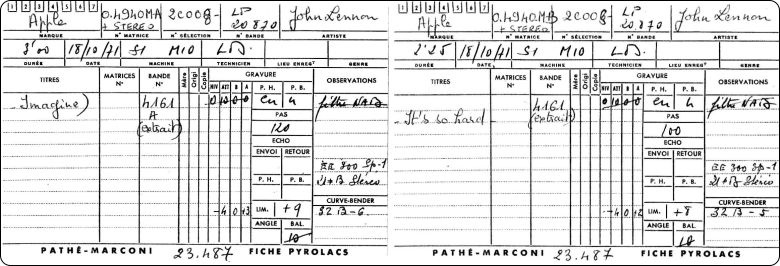 1 2 3 4 5 6 7
Apple
0.4940 MA
+ STEREO
2C008-
LP
20.870
John Lennon
MARQUE
N° MATRICE
N° SÉLECTION
N° BANDE
ARTISTE
3'00
18/10/71
S1
M10
DURÉE
DATE
MACHINE
TECHNICIEN
LIEU ENREGT
GENRE
TITRES
MATRICES N°
BANDE N°
Mère
Origi
Copie
GRAVURE
NIV ATT B A
P. H.
P. B.
OBSERVATIONS
- Imagine)
4161
A
(extrait)
0 10 0 0
en
4
PAS
120
ECHO
ENVOI
RETOUR
P. H.
P. B.
EE 300 Sp-1
Stéréo
-4 0 +3
LIM.
+9
CURVE-BENDER
32 B-6
ANGLE
BAL.
10
PATHÉ-MARCONI
23.487
FICHE PYROLACS
1 2 3 4 5 6 7
Apple
0.4940 MB
+ STEREO
2C008-
LP
20.870
John Lennon
MARQUE
N° MATRICE
N° SÉLECTION
N° BANDE
ARTISTE
2'25
18/10/71
S1
M10
DURÉE
DATE
MACHINE
TECHNICIEN
LIEU ENREGT
GENRE
TITRES
MATRICES N°
BANDE N°
Mère
Origi
Copie
GRAVURE
NIV ATT B A
P. H.
P. B.
OBSERVATIONS
- It's so hard -
4161
(extrait)
0 10 0 0
en
4
PAS
100
ECHO
ENVOI
RETOUR
P. H.
P. B.
EE 300 Sp-1
Stéréo
-4 0 +2
LIM.
+8
CURVE-BENDER
32 B-5
ANGLE
BAL.
10
PATHÉ-MARCONI
23.487
FICHE PYROLACS